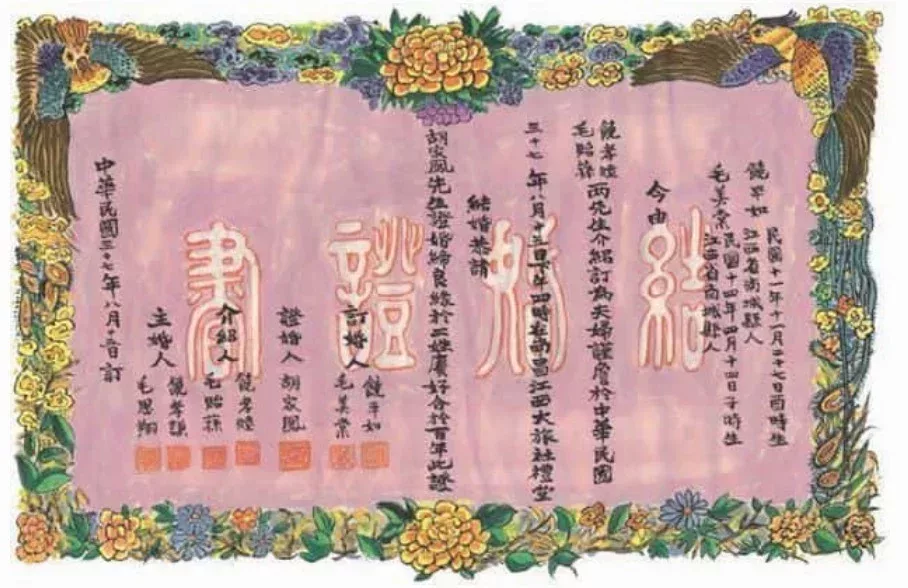 結婚證書
民國十一年十一月二十七日酉時生
饒平如 江西省南城縣人
民國十四年四月十四日子時生
毛美棠 江西省南城縣人
今由
饒孝睦
毛貽蓀 兩先生介紹訂為夫婦謹詹於中華民國
三十七年八月十五日下午四時在南昌江西大旅社禮堂
結婚恭請
胡家鳳先生證婚締良緣於二姓慶好合於百年此證
訂婚人 饒平如
毛美棠
證婚人 胡家鳳
介紹人 饒孝睦
毛貽蓀
主婚人 饒孝謙
毛思翔
中華民國三十七年八月十五日訂